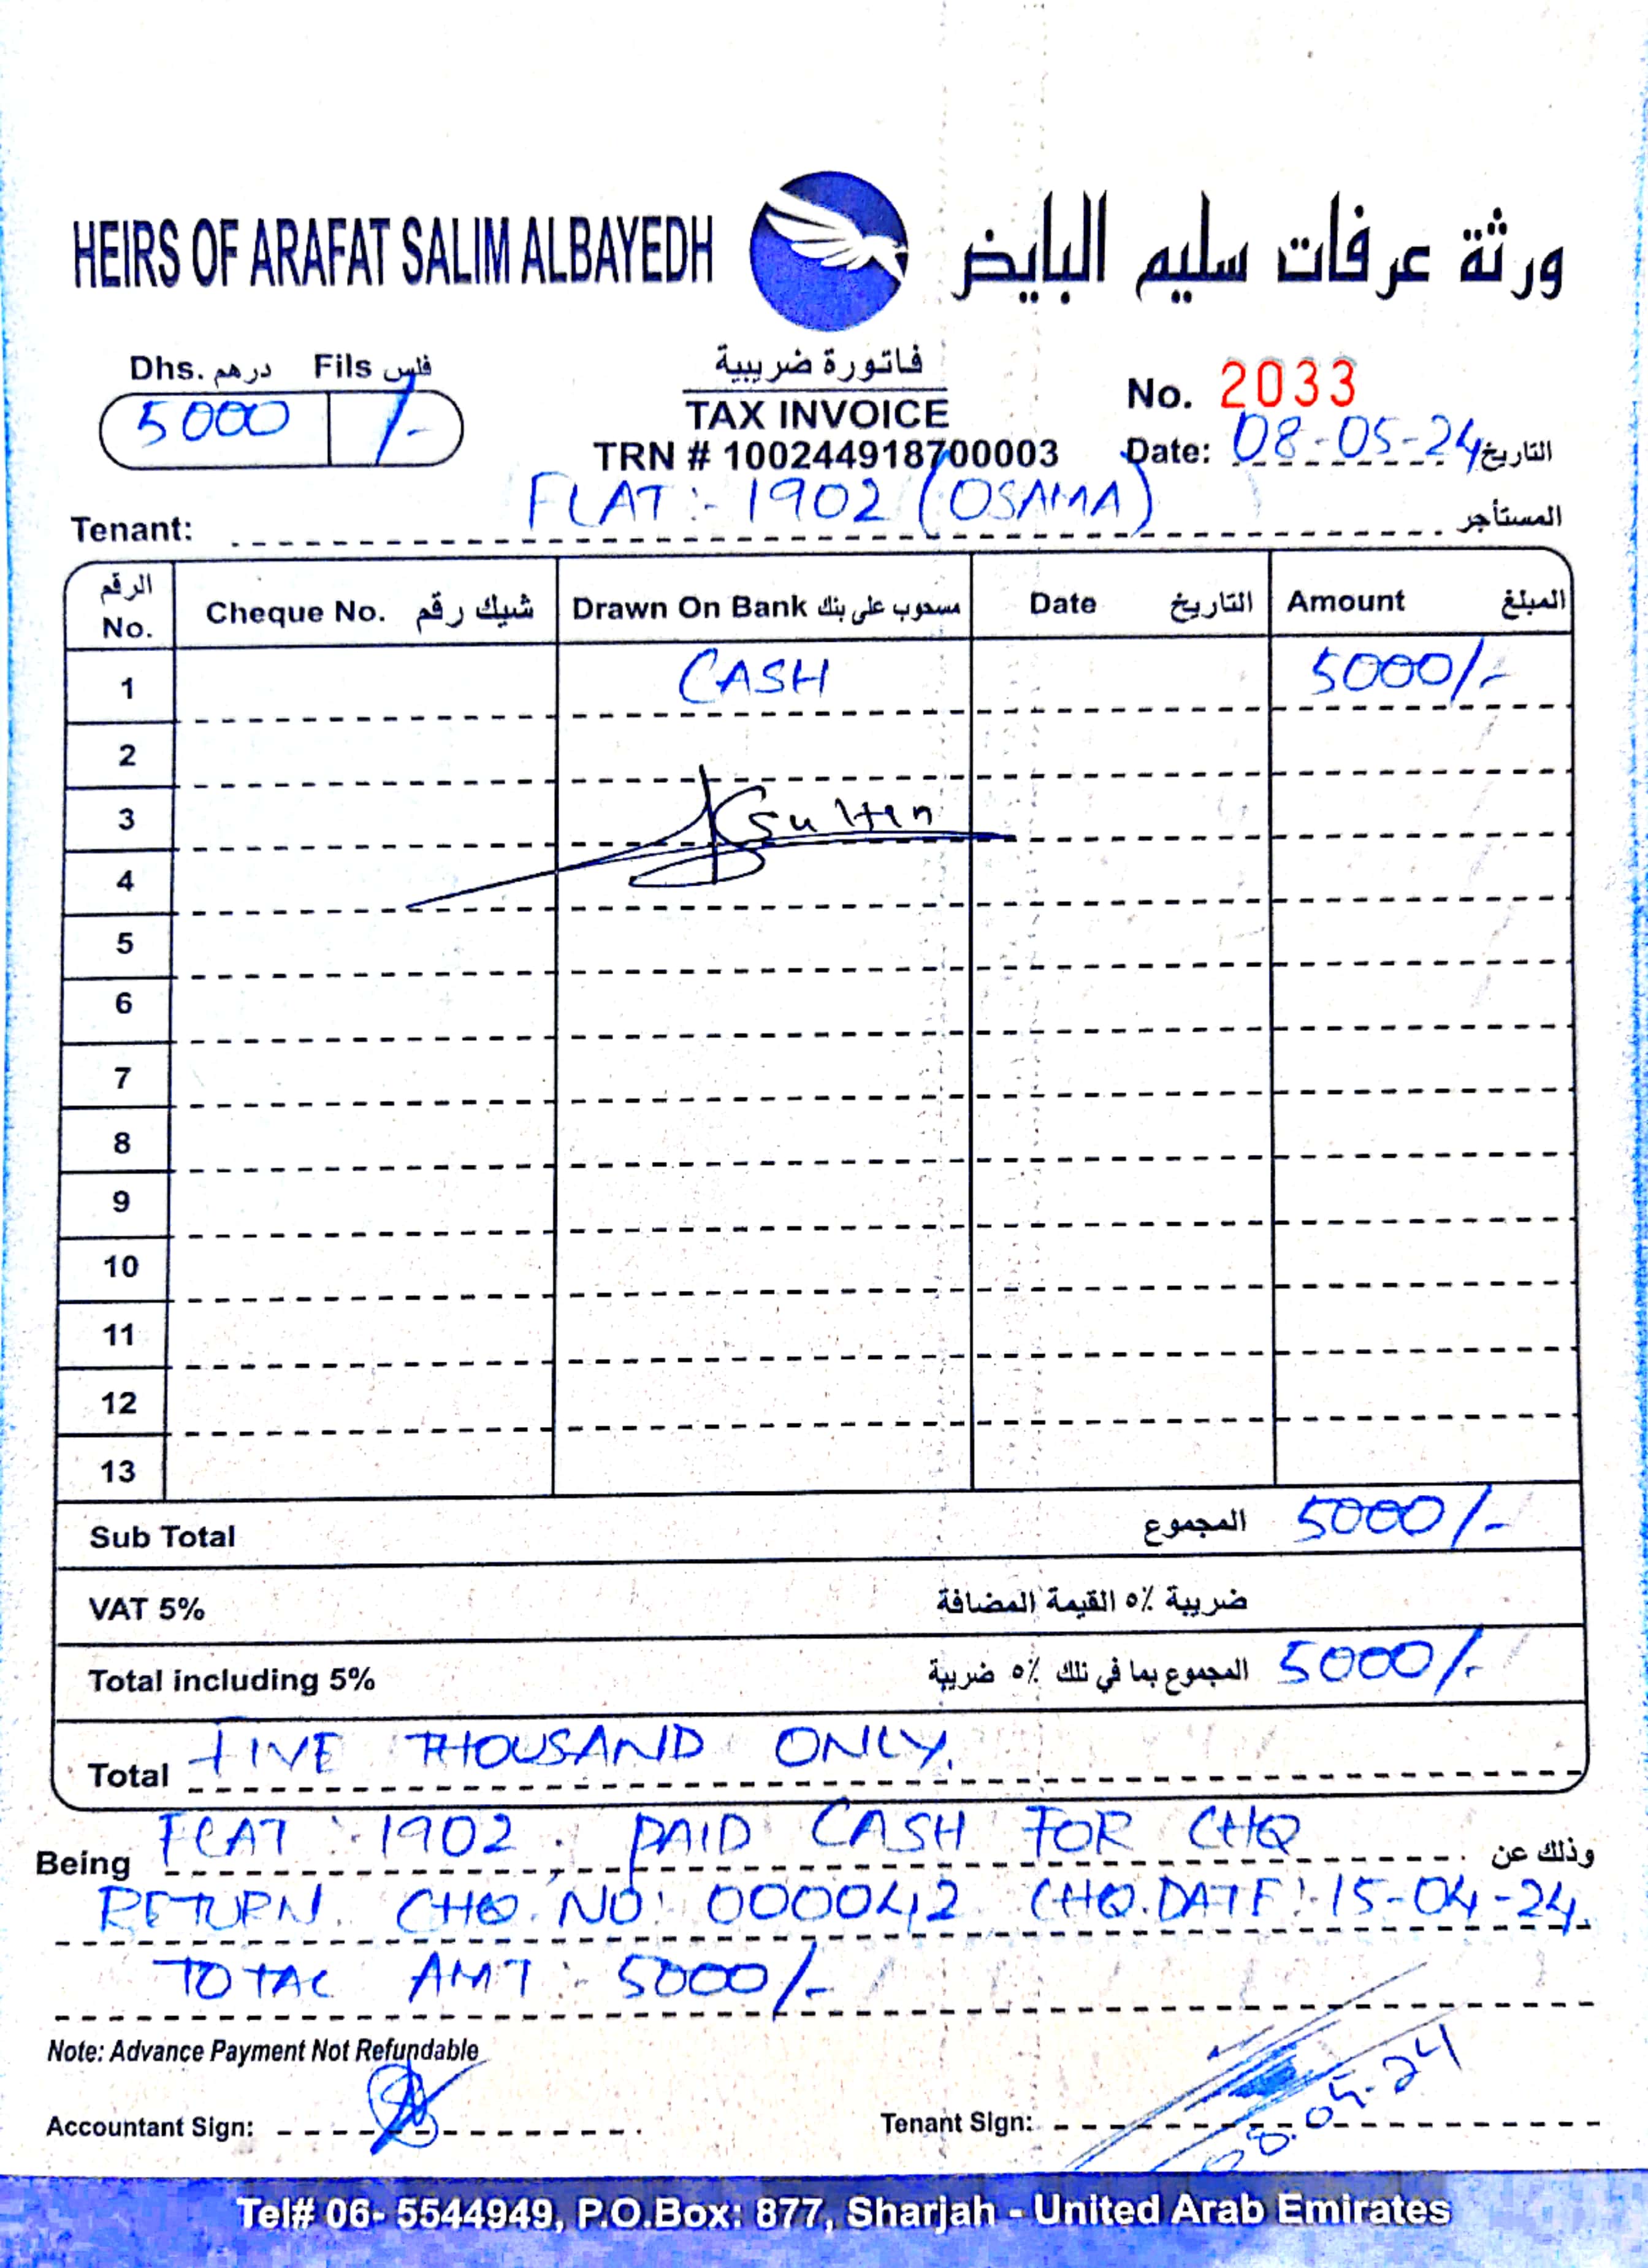 HEIRS OF ARAFAT SALIM ALBAYEDH ورثة عرفات سليم البايض
Dhs. درهم Fils فلس
5000 /-
فاتورة ضريبية
TAX INVOICE
TRN # 100244918700003
No. 2033
Date: 08-05-24 التاريخ
Tenant: FLAT :- 1902 (OSAMA) المستأجر
الرقم No. Cheque No. شيك رقم Drawn On Bank مسحوب على بنك Date التاريخ Amount المبلغ
1 CASH 5000/-
2
3 Sultan
4
5
6
7
8
9
10
11
12
13
Sub Total المجموع 5000/-
VAT 5% ضريبة ٥٪ القيمة المضافة
Total including 5% المجموع بما في ذلك ٥٪ ضريبة 5000/-
Total FIVE THOUSAND ONLY.
Being FLAT : 1902 . PAID CASH FOR CHQ وذلك عن
RETURN. CHQ. NO: 000042 CHQ.DATE: 15-04-24.
TOTAL AMT : 5000/-
Note: Advance Payment Not Refundable
Accountant Sign:
Tenant Sign: 08.05.24
Tel# 06- 5544949, P.O.Box: 877, Sharjah - United Arab Emirates